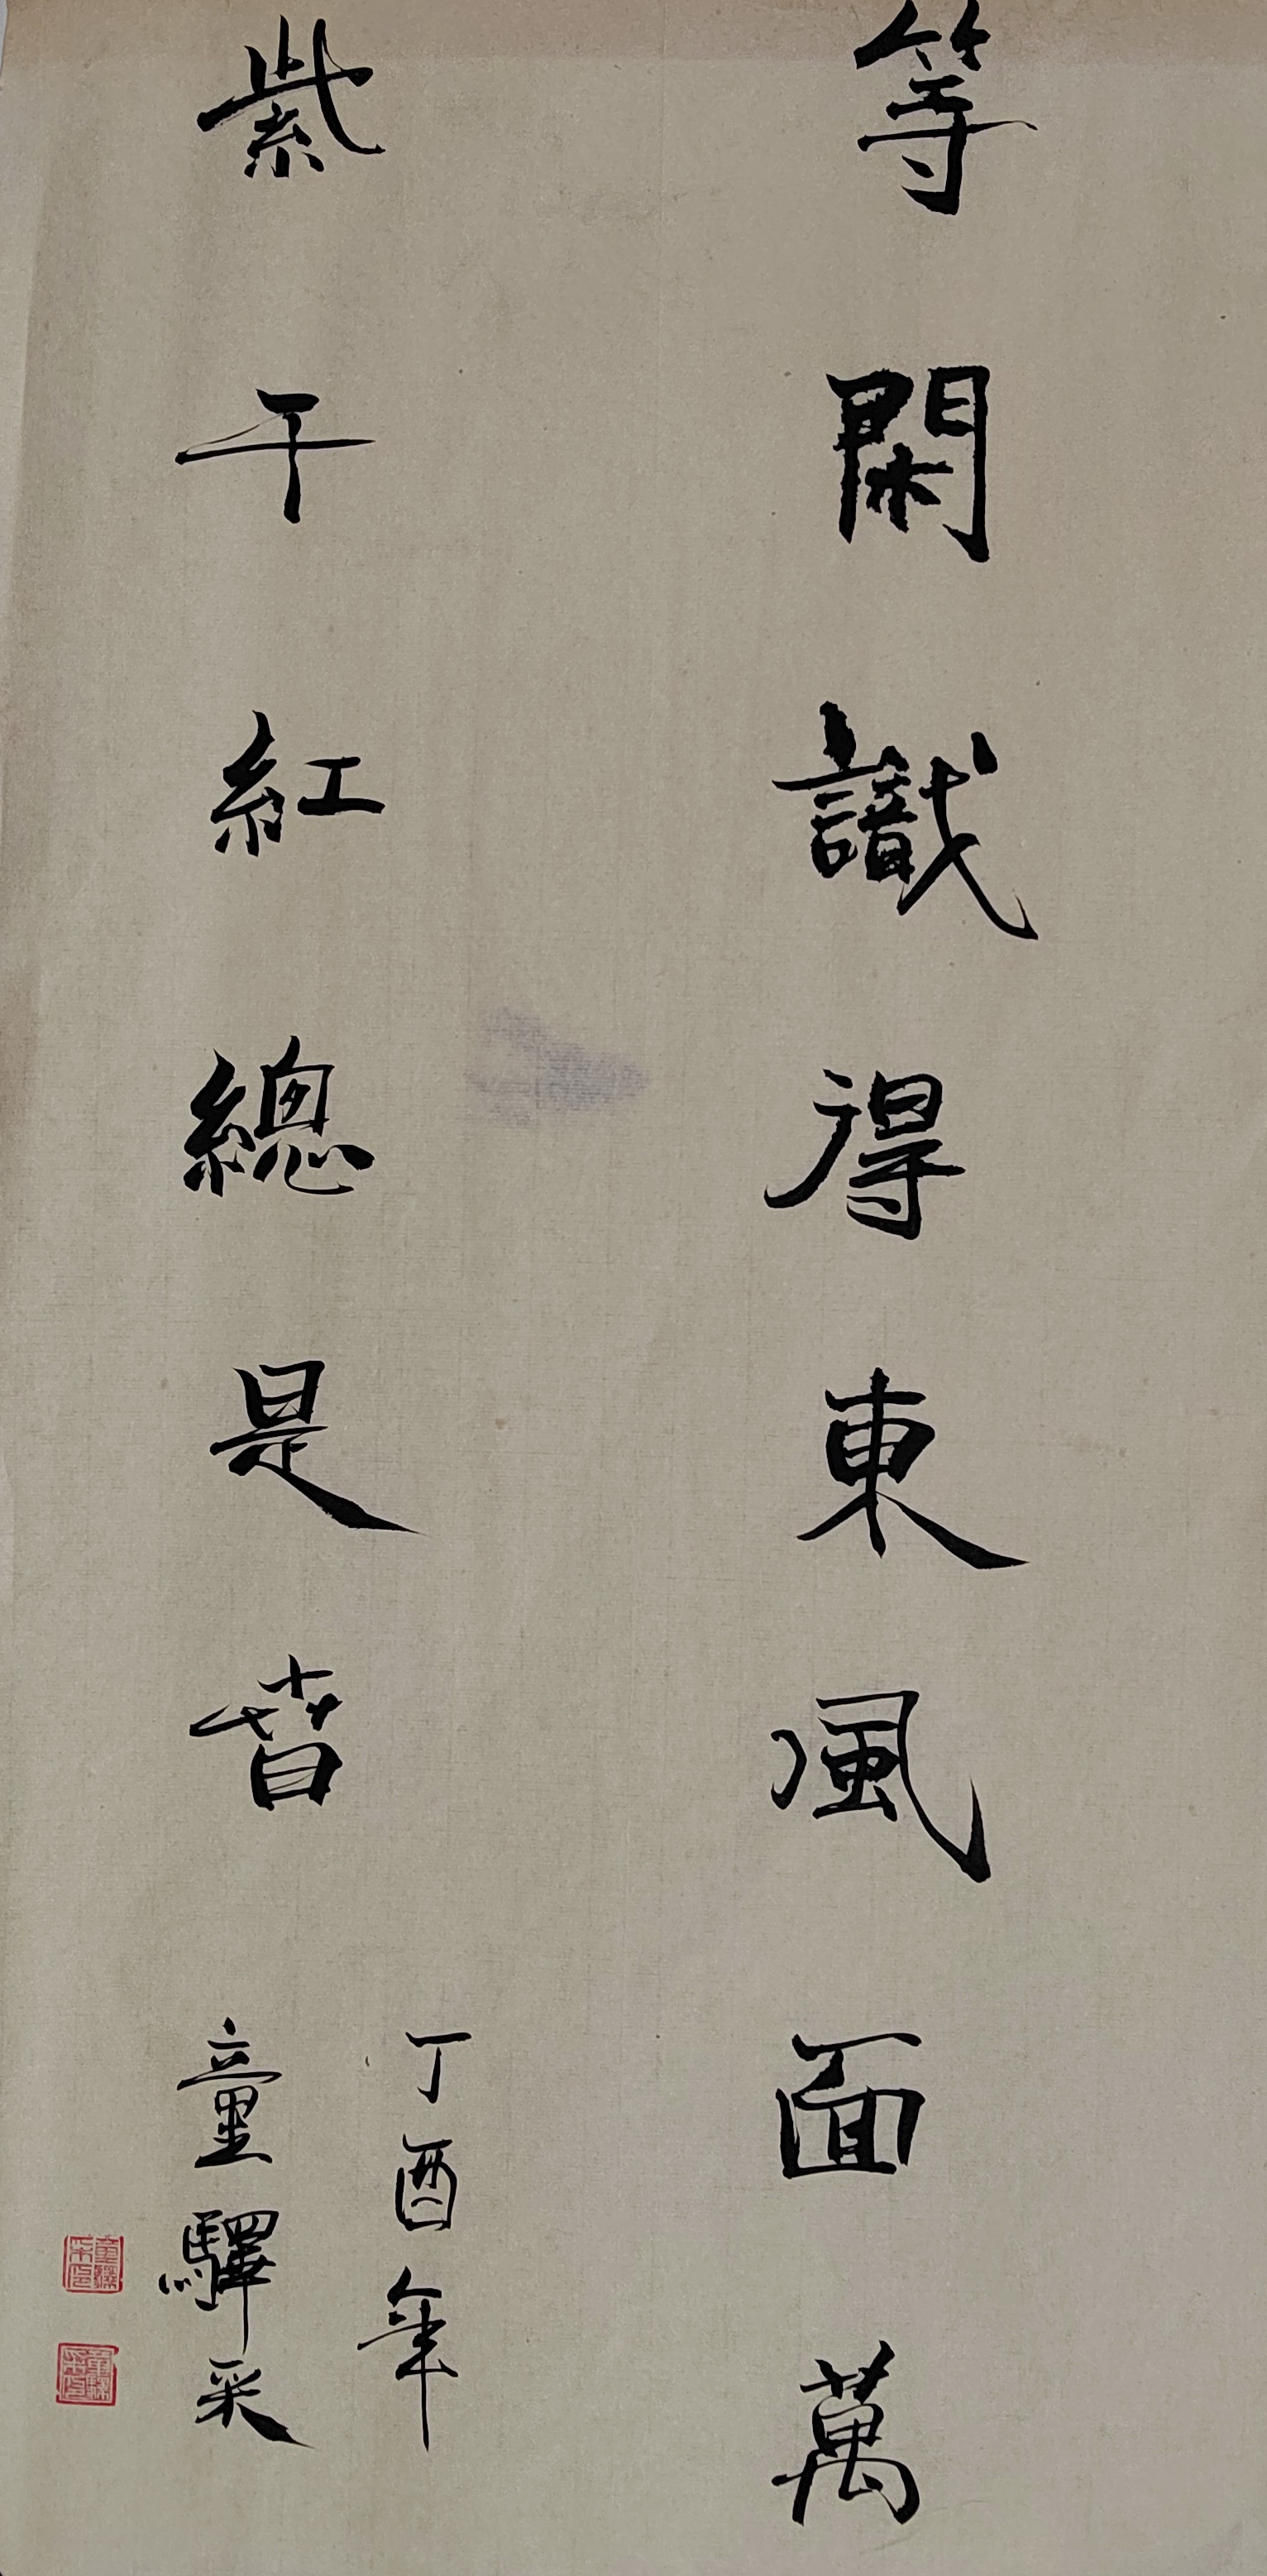 等閑識得東風面萬
紫千紅總是春
丁酉年
童驛采